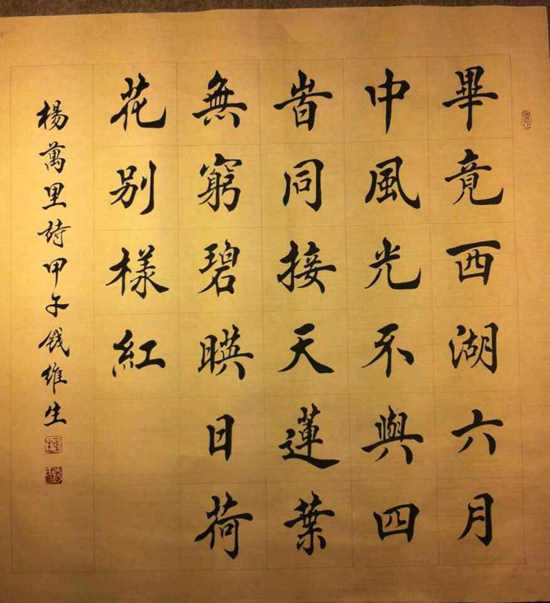 畢竟西湖六月
中風光不與四
旹同接天蓮葉
無窮碧暎日荷
花别樣紅
楊萬里詩甲午錢維生